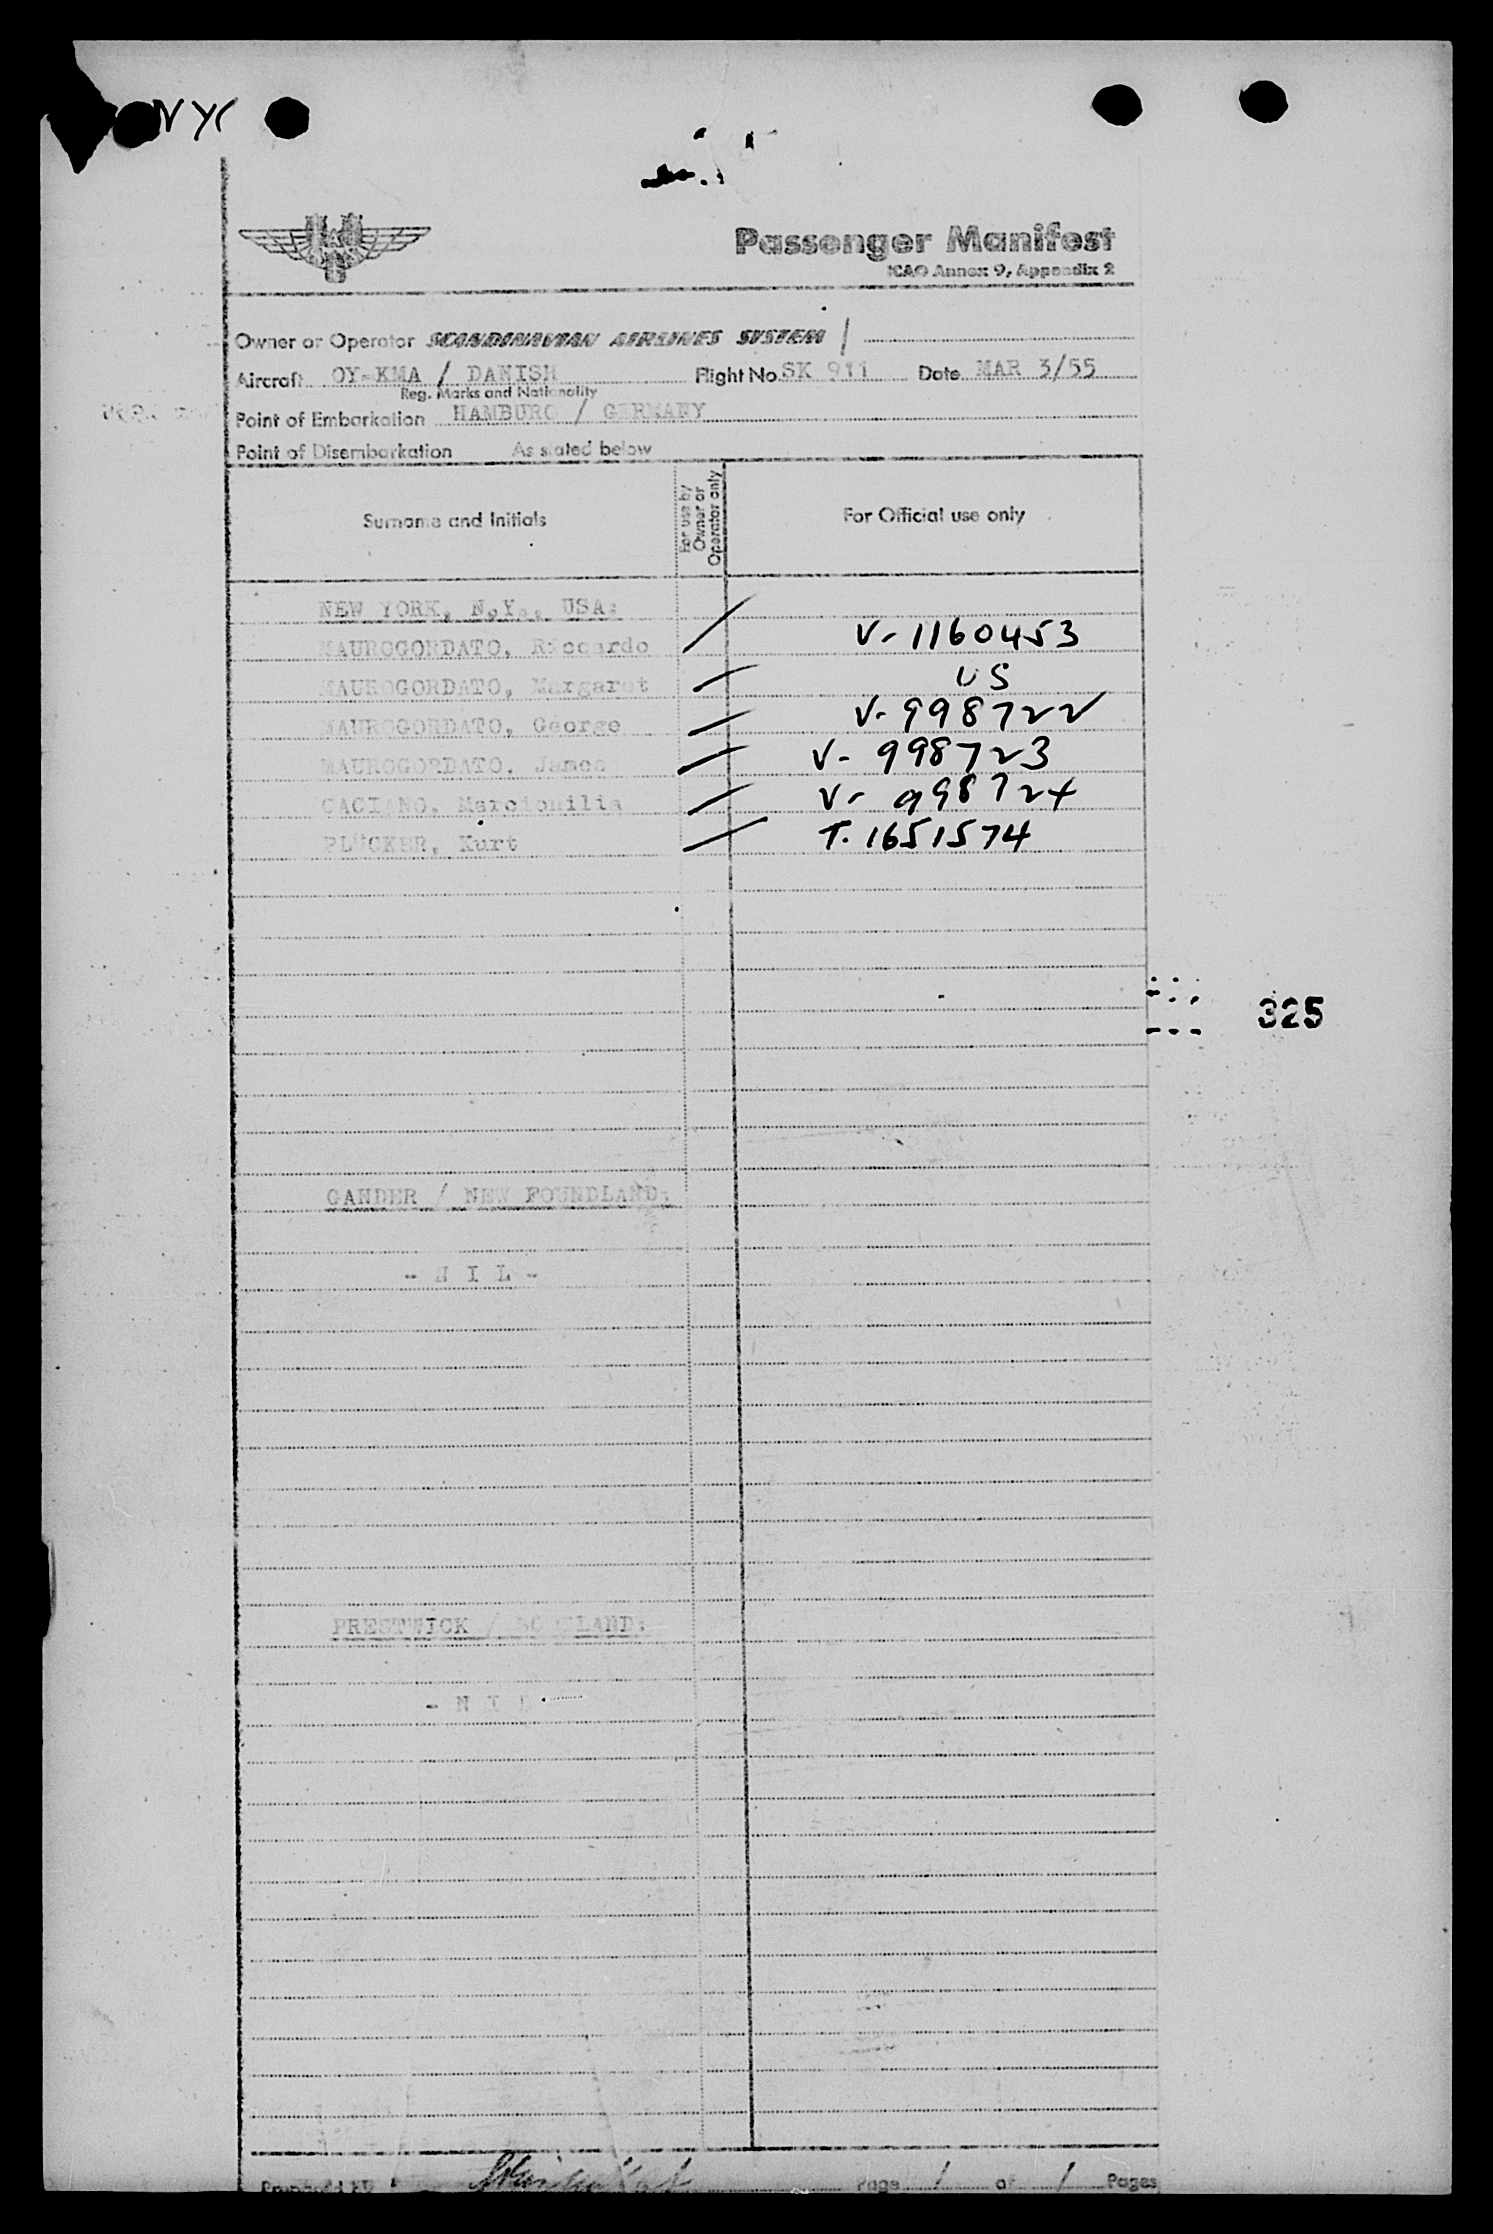 NYC
Passenger Manifest
ICAO Annex 9, Appendix 2
Owner or Operator SCANDINAVIAN AIRLINES SYSTEM /
Aircraft OY-KMA / DANISH Flight No. SK 911 Date MAR 3/55
Reg. Marks and Nationality
Point of Embarkation HAMBURG / GERMANY
Point of Disembarkation As stated below
Surname and Initials
For use by Owner or Operator only
For Official use only
NEW YORK, N.Y., USA:
MAUROGORDATO, Riccardo V-1160453
MAUROGORDATO, Margaret US
MAUROGORDATO, George V-998722
MAUROGORDATO, James V-998723
CACIANO, Marcionilia V-998724
PLÜCKER, Kurt T-1651574
325
GANDER / NEW FOUNDLAND:
- N I L -
PRESTWICK / SCOTLAND:
- N I L -
Prepared by
Page 1 of 1 Pages